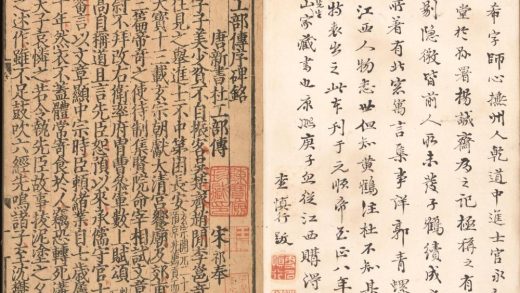 希字師心撫州人乾道中進士官永
堂於郡署楊誠齋為之記極稱之有
剔隱微皆前人所未發子鶴續成
所著有此窓寓言集事詳郭青螺
江西人物志世但知黃鶴注杜不知其
特表出之此本刊于元順帝至正八年
山家藏書也康熙庚子從江西購得
查慎行
工部傳序碑銘
唐新書杜工部傳
宋祁奉
字子美少貧不自振客吳越齊趙間李邕奇
往見之舉進士不中第困長安
天寶十三載玄宗朝獻太清宮饗廟及郊甫
篇帝奇之使待制集賢院命宰相試文章
不拜改右衛率府冑曹參軍數上賦頌
高自稱道且言先臣恕預以來承儒守官十一
以文章顯中宗時臣賴緒業自七歲屬
十年然衣不蓋體常寄食於人竊恐轉死溝
天子哀憐之若令執先臣故事拔泥塗之
之述作雖不足鼓吹六經先鳴諸子至沈鬱